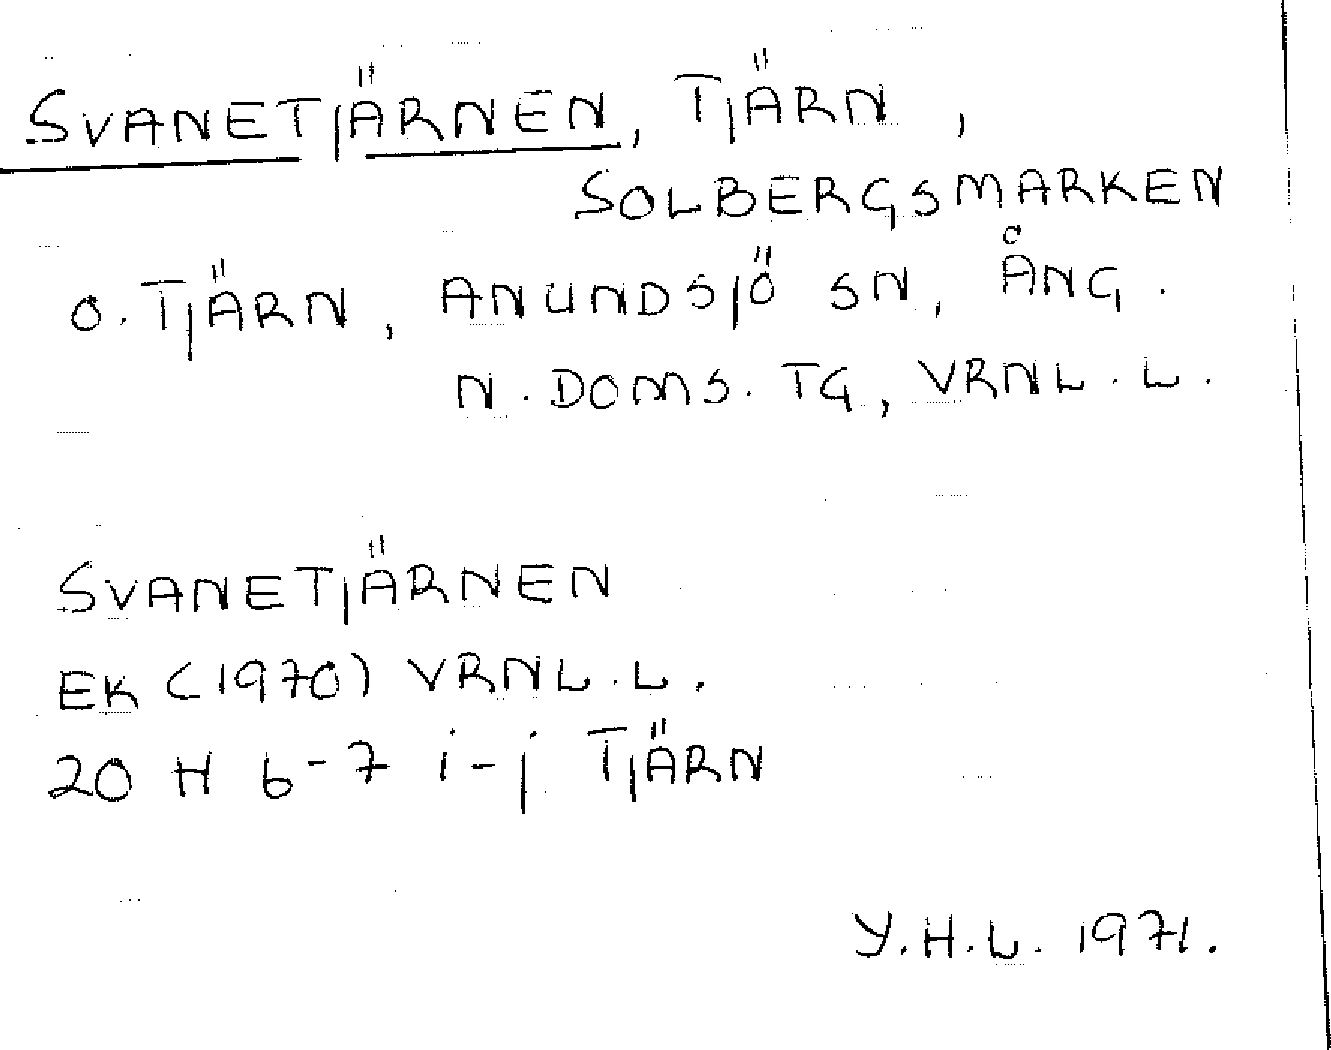 SVANETJÄRNEN, TJÄRN,
SOLBERGSMARKEN
O. TJÄRN, ANUNDSJÖ SN, ÅNG.
N. DOMS. TG, VRNL. L.
SVANETJÄRNEN
EK (1970) VRNL. L.
20 H 6-7 i-j TJÄRN
Y.H.L. 1971.